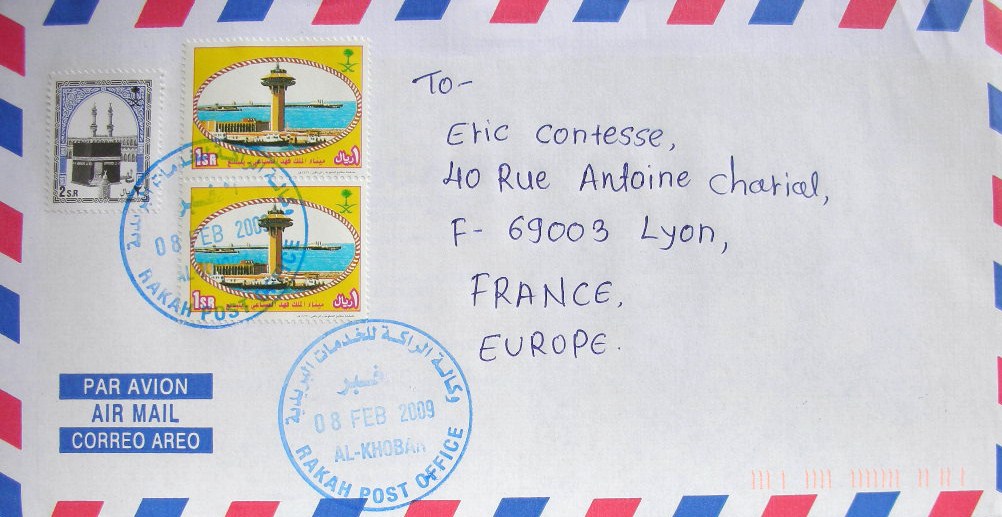 2 S.R
ريال ٢
1SR
ريال ١
ميناء الملك فهد الصناعي بـ ينبع
1SR
ريال ١
ميناء الملك فهد الصناعي بـ ينبع
08 FEB 2009
RAKAH POST
To-
Eric Contesse,
40 Rue Antoine Charial,
F- 69003 Lyon,
FRANCE,
EUROPE.
PAR AVION
AIR MAIL
CORREO AREO
وكالة الراكة للخدمات البريدية
08 FEB 2009
AL-KHOBAR
RAKAH POST OFFICE